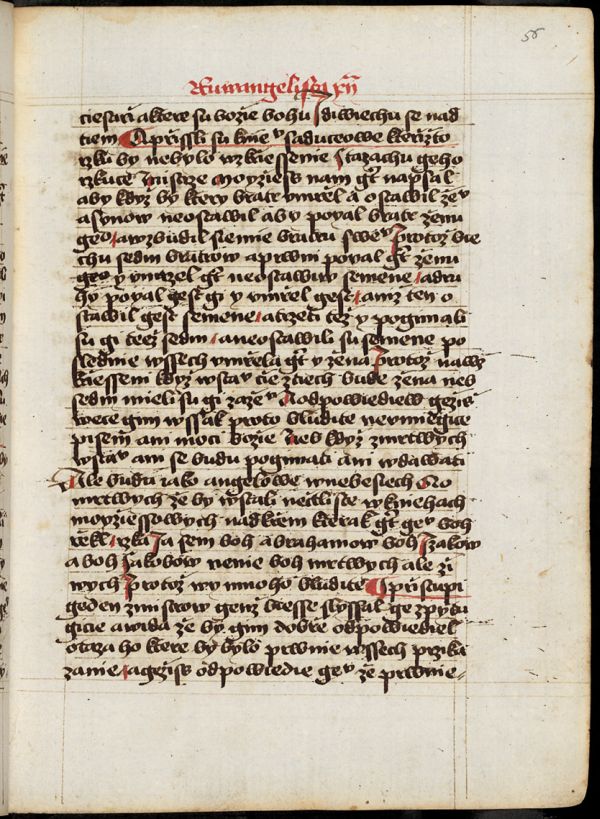 Ewangelista xii
56
ciesari aktere su bozie bohu / Idiwiechu se nad
tiem ¶ A prissli su knieᵛ saduceowe kterizto
rzku by nebylo wzkriessenie / Itazachu geho
rzkuce / Mistrze Moyziess nam gt̄ napsal
aby kdyz by ktery bratr vmrel a ostawil żeᵛ
a synow neostawil aby poyal bratr żenu
geᵒ / awzbudil siemie bratru sweᵛ / Protoż bie
chu sedm bratrow a prwni poyal gt̄ żenu
geᵒ y vmrzel gt̄ neostawiw semene / a dru
hy poyal gest gi y vmrel gest / aniz ten o
stawil gest semene / a trzeti też y pogimali
su gi teez sedm / a neostawili su semene po
slednie wssech vmrela gt̄ y żena Protoż nawz
kriesseni kdyż wstaᵛ cie z tiech bude żena neb
sedm mieli su gi zażeᵛ A odpowiediew gezis
wece gim wssak proto bludite neumiegice
pisem ani moci bozie Neb kdyż zmrtwych
wstaᵛ ani se budu pogimati ani wdawati
Ale budu iako angelowe wnebesiech A o
mrtwych że by wstali necztliste w kniehach
moyziessowych nad krem kterak gt̄ geᵛ boh
rekl / rzka Ia sem boh abrahamow boh Izakow
a boh Iakobow nenie boh mrtwych ale zi
wych Protoż wy mnoho bludite ¶ I pristupi
geden zmistrow genż biesse slyssal ge zpytu
gicie a wida że by gim dobre odpowiediel
otaza ho ktere by bylo prwnie wssech przika
zanie / a geziss odpowiedie geᵛ że prwnie